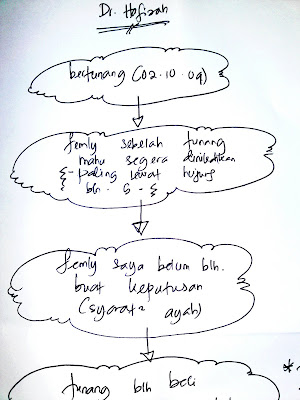 Dr. Hafizah
bertunang (02.10.09)
femly sebelah tunang
mahu segera dinikahkan
{- paling lewat hujung
bln. 6 - }
femly saya belum blh.
buat keputusan
(syarat² ayah)
tunang blh beli
*